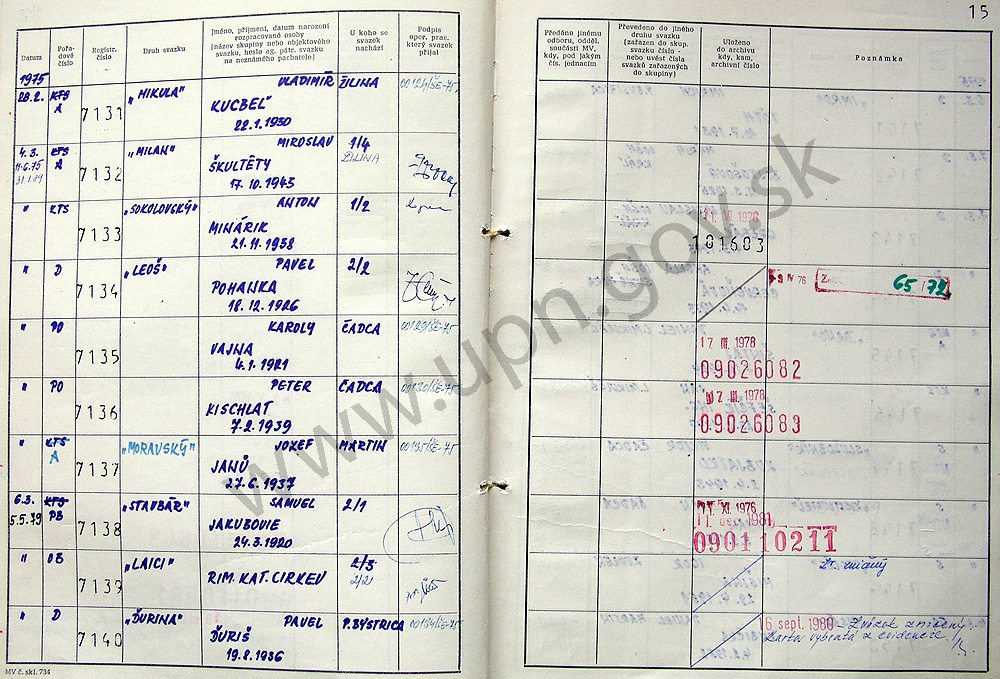 15
Datum
Pořadové číslo
Registr. číslo
Druh svazku
Jméno, příjmení, datum narození
rozpracované osoby
(název skupiny nebo objektového
svazku, heslo ag. pátr. svazku
na neznámého pachatele)
U koho se
svazek
nachází
Podpis
oper. prac.
který svazek
přijal
Předáno jinému
odboru, odděl.
součásti MV,
kdy, pod jakým
čís. jednacím
Převedeno do jiného
druhu svazku
(zařazen do skup.
svazku číslo -
nebo uvést čísla
svazků zařazených
do skupiny)
Uloženo
do archivu
kdy, kam,
archivní číslo
Poznámka
1975
28.2. KTS A 7131 „MIKULA" VLADIMÍR ŽILINA 00124/ŠE-75
KUCBEĽ
22.1.1930
4.3. KTS A 7132 „MILAN" MIROSLAV 1/4
11.6.75 ŽILINA
ŠKULTÉTY
17.10.1945
" KTS 7133 „SOKOLOVSKÝ" ANTON 1/2
MINÁRIK
21.11.1938
VI. 1976
101603
" D 7134 „LEOŠ" PAVEL 2/2
POHANKA
18.12.1926
IV 76 65/72
" PO 7135 KAROLY ČADCA 00129/ŠE-75
VAJNA
4.1.1921
17 III. 1978
09026082
" PO 7136 PETER ČADCA 00130/ŠE-75
KISCHLAT
7.2.1939
17 III. 1978
09026083
" KTS A 7137 „MORAVSKÝ" JOZEF MARTIN 00135/ŠE-75
JANŮ
27.6.1937
6.3. KTS 7138 „STAVBÁR" SAMUEL 2/1
5.5.79 PB
JAKUBOVIE
24.3.1920
XI. 1976
11. dec. 1981
0901 10211
" OB 7139 „LAICI" 2/3
RIM. KAT. CIRKEV 2/2
" D 7140 „ĎURINA" PAVEL P.BYSTRICA 00134/ŠE-75
ĎURIŠ
19.8.1936
16 sept. 1980 - Zväzok zničený.
Karta vybratá z evidencie.
MV č. skl. 734
www.upn.gov.sk